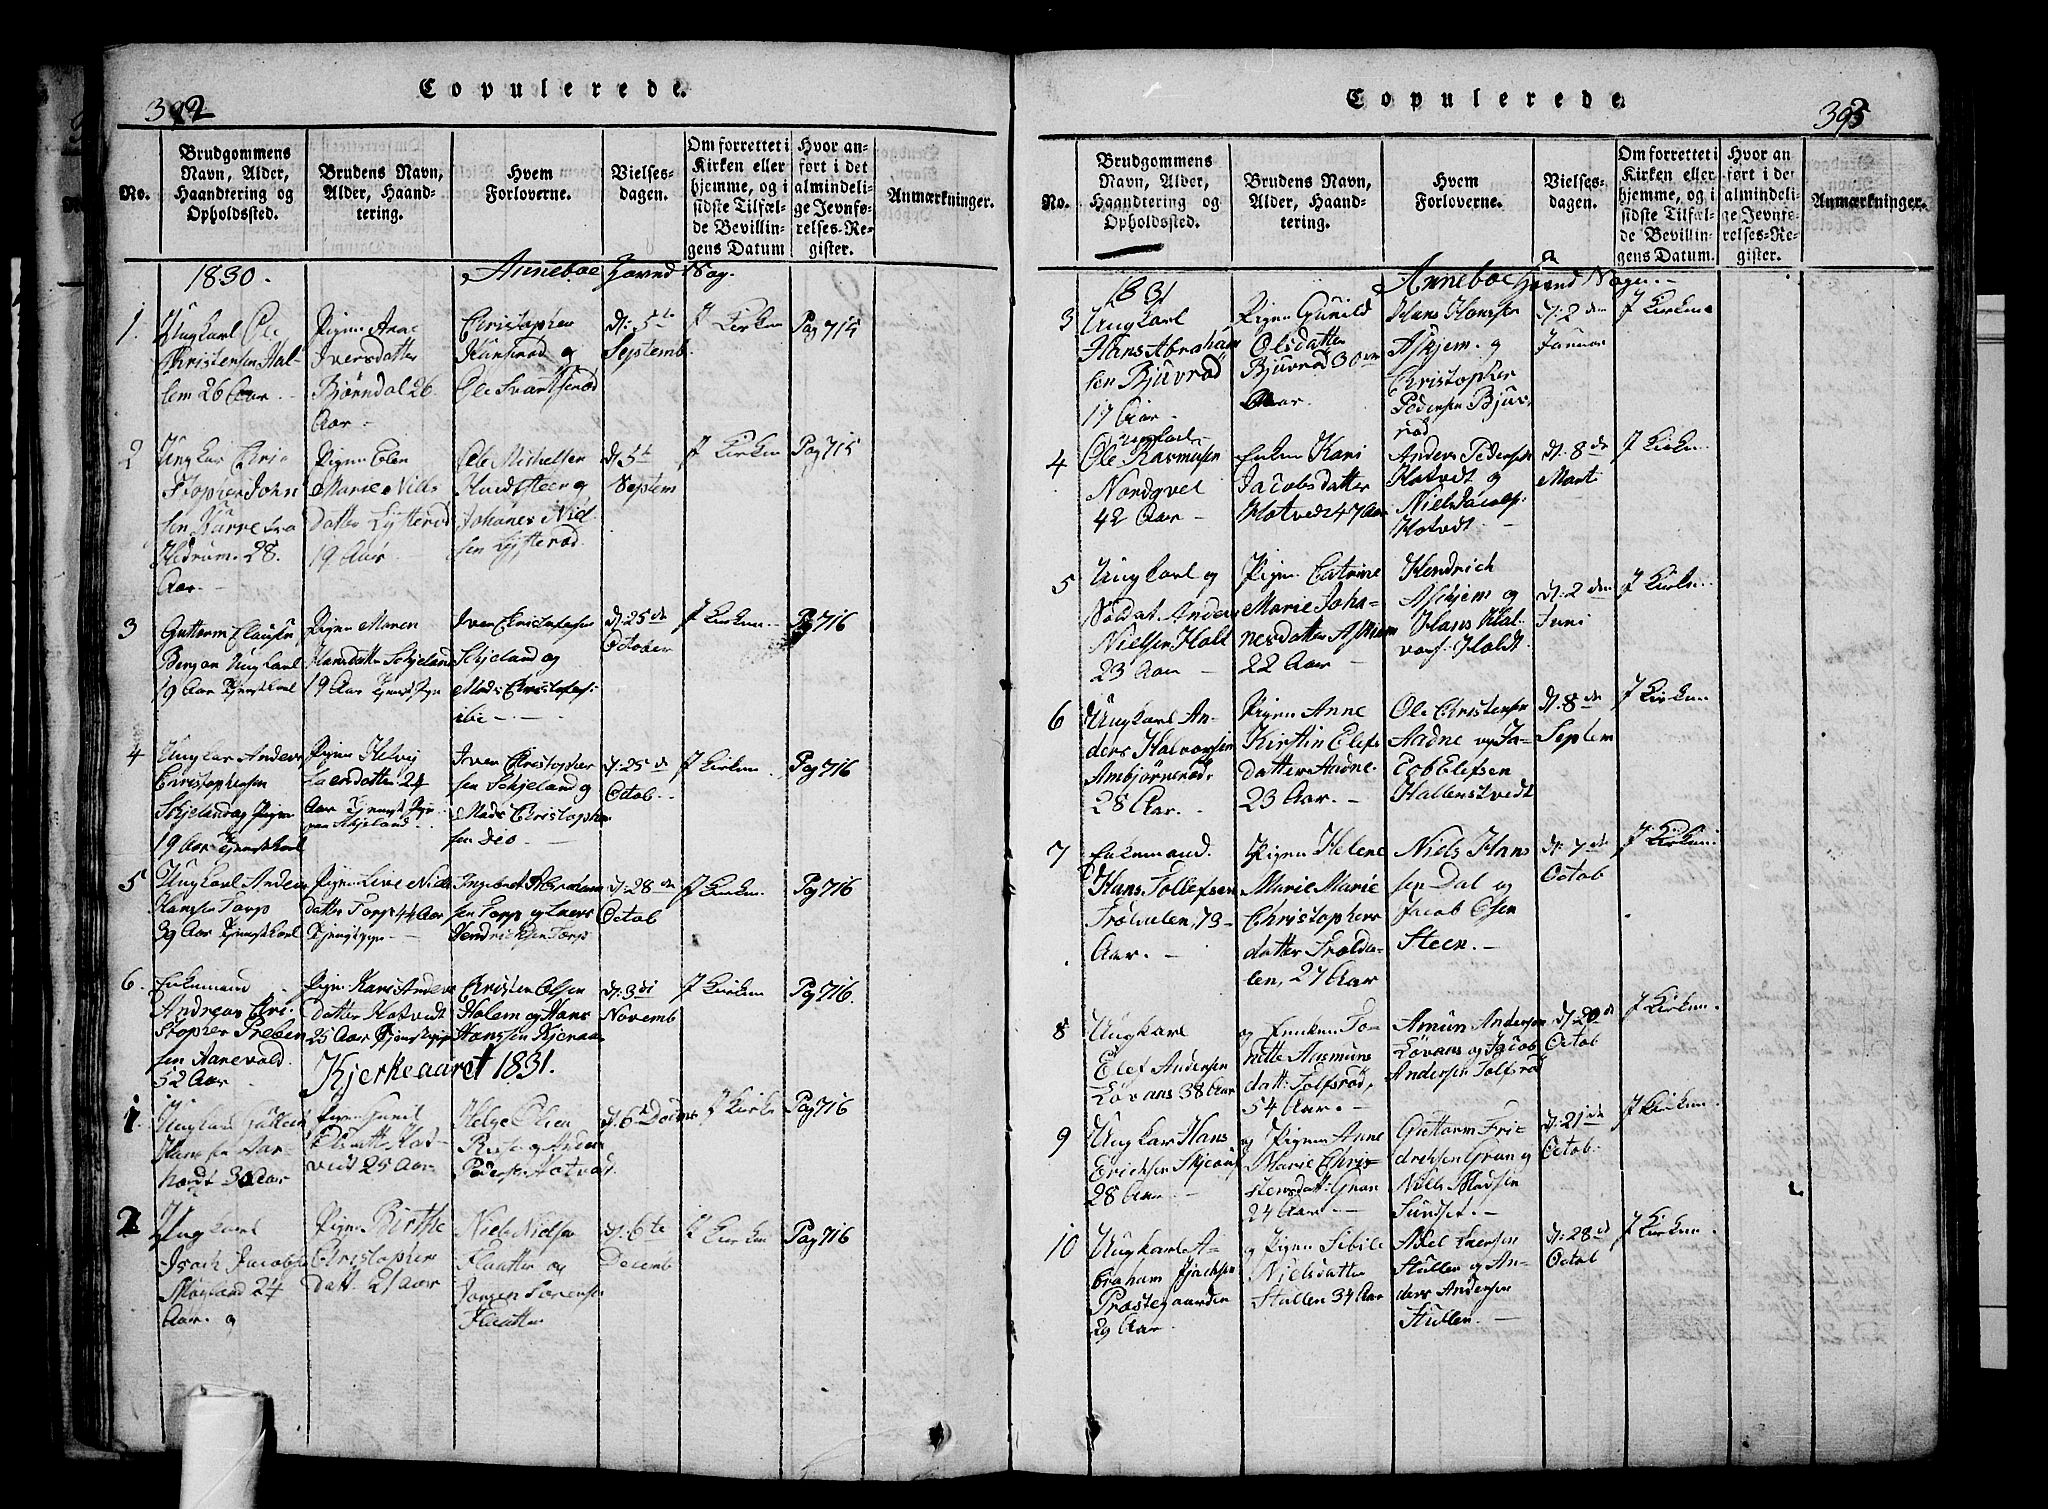 392
Copulerede.
No.
Brudgommens
Navn, Alder,
Haandtering og
Opholdssted.
Brudens Navn,
Alder, Haand-
tering.
Hvem
Forloverne.
Vielses-
dagen.
Om forrettet i
Kirken eller
hjemme, og i
sidste Tilfæl-
de Bevillin-
gens Datum
Hvor an-
ført i det
almindeli-
ge Jevnfø-
relses-Re-
gister.
Anmærkninger.
1830.
Anneboe Hovnd Sog.
1.
Ungkarl Ole
Christensen Hal-
sem 26 Aar.
Pigen Anne
Iversdatter
Bjørndal 26
Aar -
Christopher
og
Ole Svartserød
d: 5te
Septemb
J Kirken
Pag 714
2
Ungkar Chri-
stopher John
sen fra
Hedrum. 28.
Aar. -
Pigen Elen
Marie Niels
datter Lytterød
19 Aar.
Ole Michelsen
og
Johanes Niel-
sen Lytterød
d: 5te
Septem
J Kirken
Pag 715
3
Guttorm Clausen
Bergan Ungkarl
19 Aar Tjenestkarl
Pigen Maren
Hansdatter Schjeland
19 Aar
Iver Christophersen
Schjeland og
Mads Christophers:
ibid -
d: 25de
October
J Kirken.
Pag 716
4
Ungkar Anders
Christophersen
Schjeland
19 Aar Tjenestkarl
Pigen
Laersdatter 24
Aar
Schjeland.
Iver Christopher
sen Schjeland og
Mads Christopher
sen dio -
d: 25de
Octob.
J Kirken
Pag 716
5
Ungkarl Anders
Hansen Torp
39 Aar Tjenestkarl
Pigen Live Niels
datter Torp 44 Aar
Ingebret Abraham
sen Torp og Laers
Hendricksen Torp
d: 28de
Octob
J Kirken.
Pag 716
6.
Enkemand
Andreas Chri-
stopher Preben
sen Aanevold
52 Aar
Pigen Kari Anders
datter Hotvedt
25 Aar
Christen Olsen
Holem og Hans
Hanssen Kjenaas
d: 3di
Novemb
J Kirken
Pag 716.
Kjerkeaaret 1831.
1.
Ungkarl
Hansen Aar-
holdt 30 Aar
Pigen Gunil
Olsdatter Hot-
vedt 25 Aar
Helge Olsen
og Anders
Pedersen Hotvedt
d: 6te Decmb
J Kirke
Pag 716
2
Ungkarl
Isach Jacobsen
Skogland 24
Aar. og
Pigen Birthe
Christopher
datt: 21 Aar
Niels Nielsen
Flaatten og
Jørgen Sørensen
Flaatten
d: 6te
Decemb
J Kirken
Pag 716
Copulerede.
393
No.
Brudgommens
Navn, Alder,
Haandtering og
Opholdssted.
Brudens Navn,
Alder, Haand-
tering.
Hvem
Forloverne.
Vielses-
dagen.
Om forrettet i
Kirken eller
hjemme, og i
sidste Tilfæl-
de Bevillin-
gens Datum.
Hvor an
ført i det
almindeli-
ge Jevnfø-
relses-Re-
gister.
Anmærkninger.
1831
Anneboe Hovnd Sogn. -
3
Ungkarl
Hans Abraham
sen Bjuvrød
17 Aar -
Pigen Gunild
Olsdatter
Bjuvrød 30
Aar.
Hans Hansen
Askjem. og
Christopher
Pedersen Bjuv-
rød
d: 2den
Januar
J Kirken
4
Ungkarl
Ole Rasmusen
Nordqvel
42 Aar -
Enken Kari
Jacobsdatter
Hotvedt 47 Aar
Anders Pedersen
Hotvedt og
Niels Jacobs:
Hotvedt -
d: 8de
Marti
J Kirken.
5
Ungkarl og
Soldat Anders
Nielsen Holt
23 Aar -
Pigen Catrine
Marie Joha-
nesdatter Askjem
22 Aar -
Hendrich
Askjem og
Hans Hal-
vors: Holdt
d: 2den
Juni
J Kirken.
6
Ungkarl An-
ders Halvorsen
Ambjørnsrød.
28 Aar. -
Pigen Anne
Kirstin Elefs
datter Aadne
23 Aar. -
Ole Christensen
Aadne og Ja-
cob Elefsen
Hallenstvedt
d: 8de
Septem
J Kirken
7
Enkemand.
Hans Tollefsen
Trolualen, 73
Aar. -
Pigen Helene
Marie Marie
Christophers
datter Trolda-
len, 27 Aar
Niels Hans
sen Dal og
Jacob Olsen
Steen. -
d: 7de
Octob
J Kirken.
8
Ungkarl
Elef Andersen
Løvaas 38 Aar
og Enken To-
nette Aasmuns
datt: Tolfsrød,
54 Aar. -
Amun Andersen
Løvaas og Jacob
Andersen Tolfsrød
d: 20de
Octob
J Kirken.
9
Ungkar Hans
Erichsen Skjeaus
28 Aar. -
og Pigen Anne
Marie Chris-
stensdatt: Gran
24 Aar. -
Guttorm Fri-
drichsen Gran og
Niels Madsen
Sundset. -
d: 21de
Octob.
J Kirken.
10
Ungkarl A-
braham Isachsen
Præstegaarden
29 Aar.
og Pigen Sibile
Nielsdatter
Stullen 34 Aar
Axel Laersen
Stullen og An-
ders Andersen
Stullen. -
d: 28de
Octob
J Kirken.